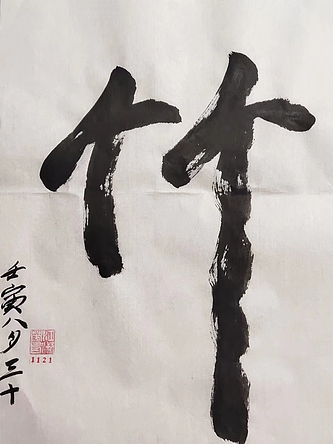 竹
壬寅八月三十
1121